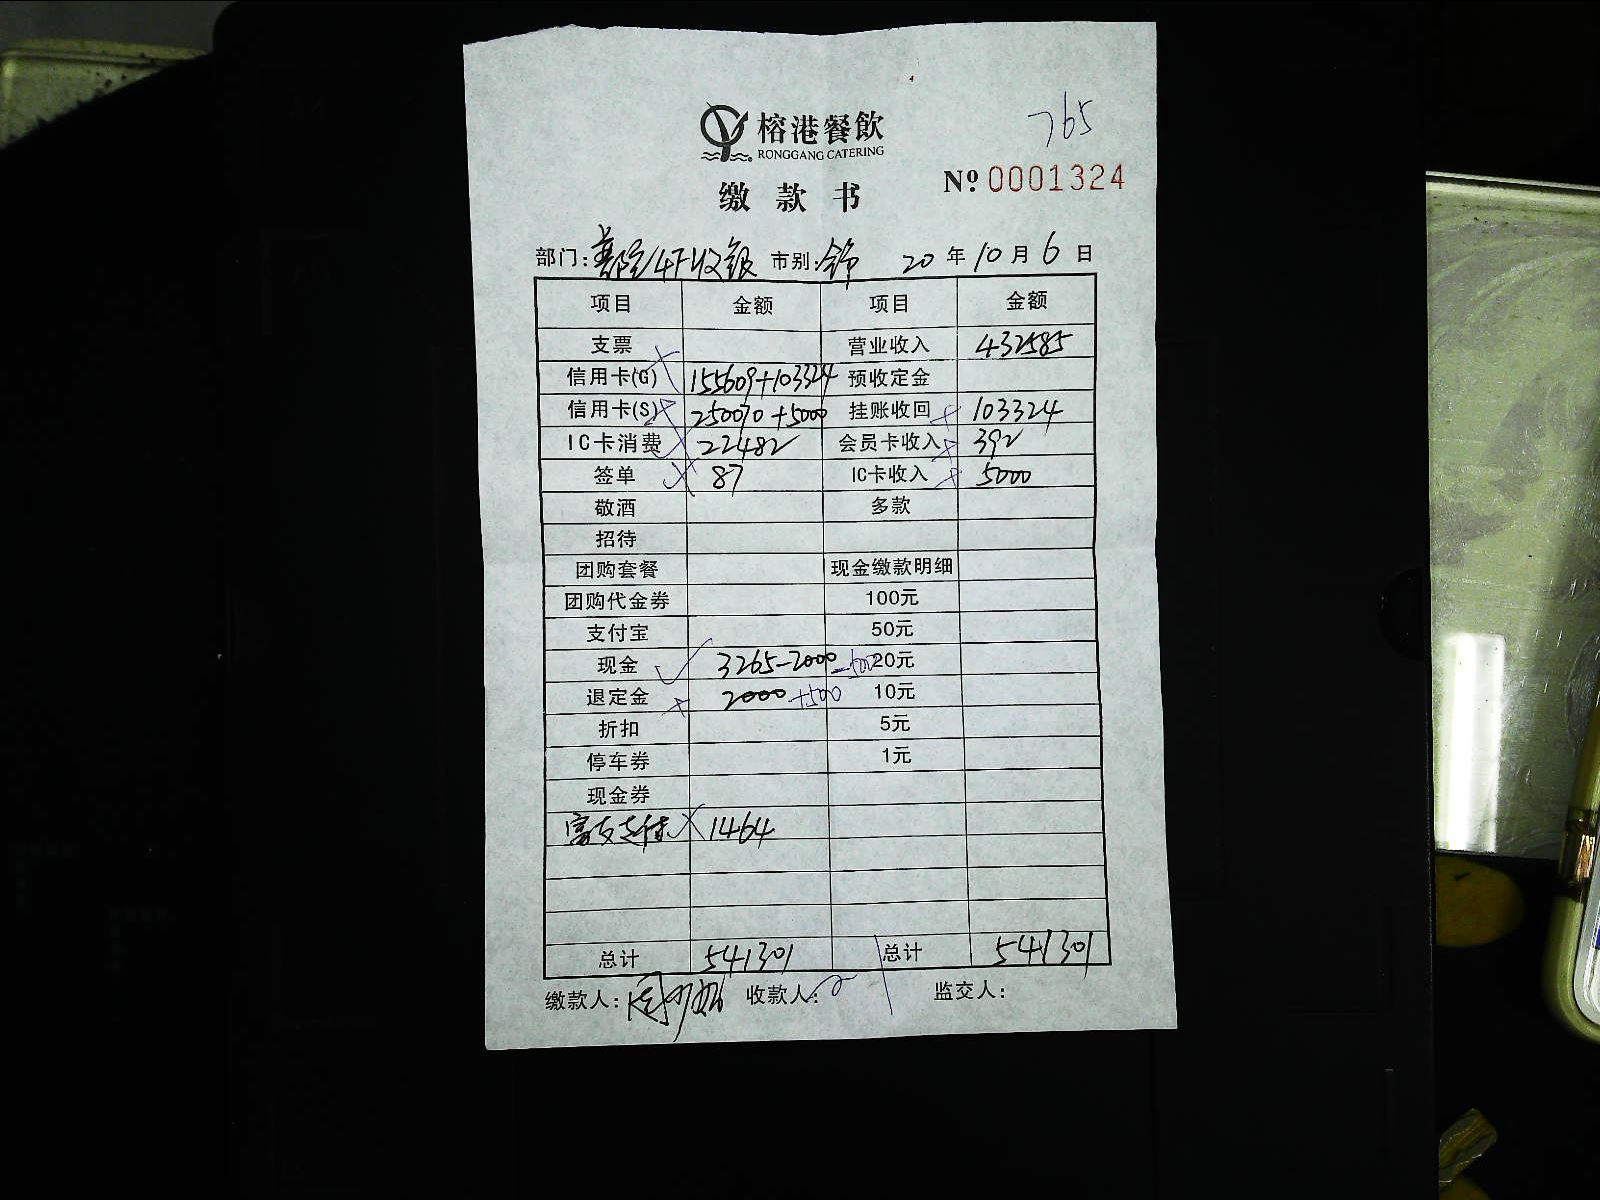 765
榕港餐飲
RONGGANG CATERING
№ 0001324
缴款书
部门: 4F收银 市别: 20 年 10 月 6 日
项目 金额 项目 金额
支票 营业收入 432585
信用卡(G) 155609+103324 预收定金
信用卡(S) 250070+5000 挂账收回 103324
IC卡消费 22482 会员卡收入 392
签单 87 IC卡收入 5000
敬酒 多款
招待
团购套餐 现金缴款明细
团购代金券 100元
支付宝 50元
现金 3265-2000-500 20元
退定金 2000+500 10元
折扣 5元
停车券 1元
现金券
富友支付 1464
总计 541301 总计 541301
缴款人: 收款人: 监交人: